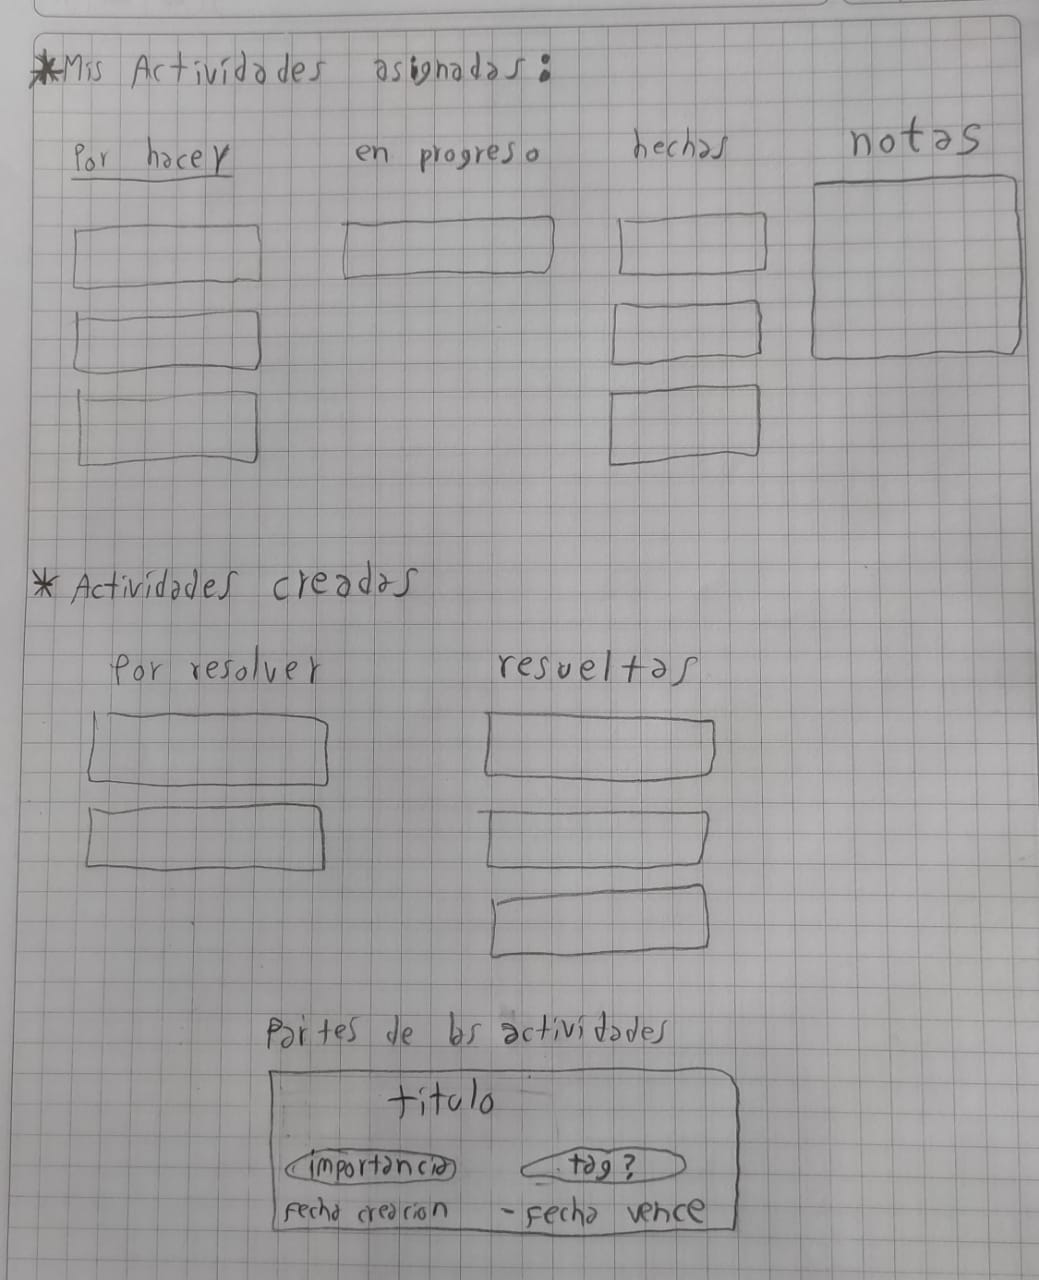 *Mis Actividades asignadas:
Por hacer en progreso hechas notas
* Actividades creadas
Por resolver resueltas
Partes de las actividades
titulo
importancia tag?
Fecha creacion - Fecha vence